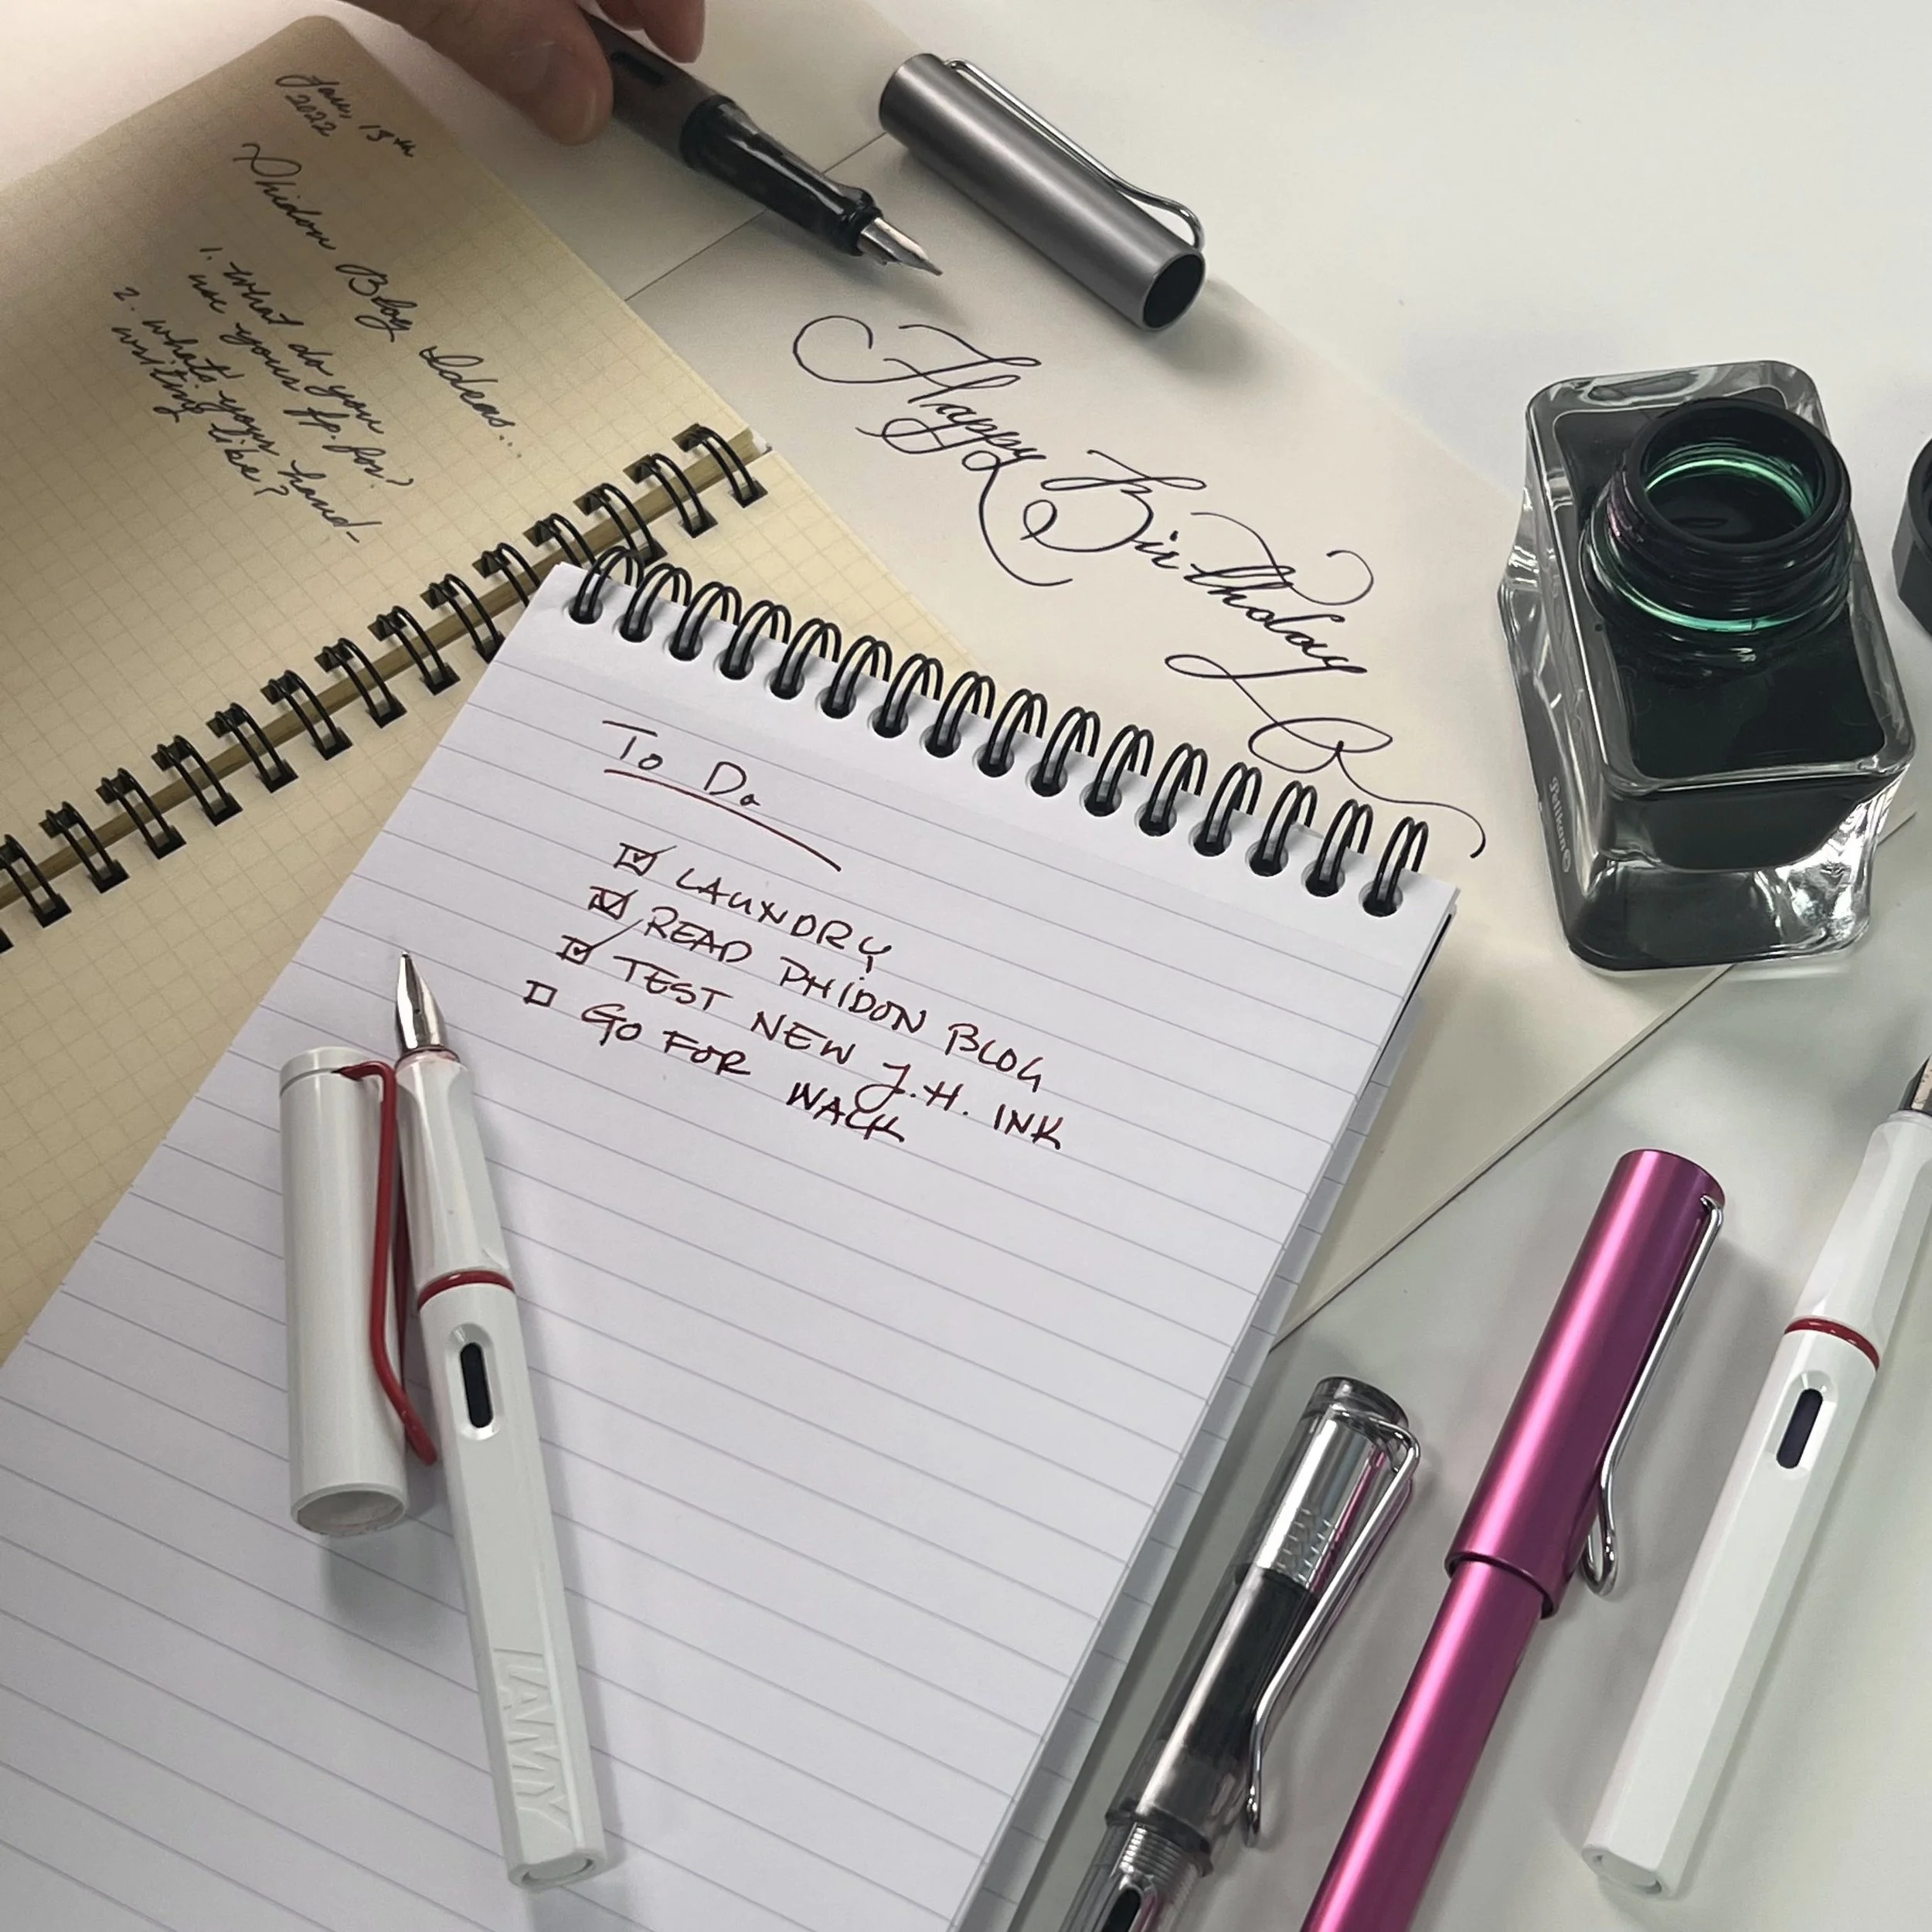 Jan. 13th
2022
Phidon Blog Ideas...
1. What do you
use your fp. for?
2. What's your hand-
writing like?
Happy Birthday
To Do
LAUNDRY
READ PHIDON BLOG
TEST NEW J.H. INK
GO FOR
WALK
Pelikan
LAMY